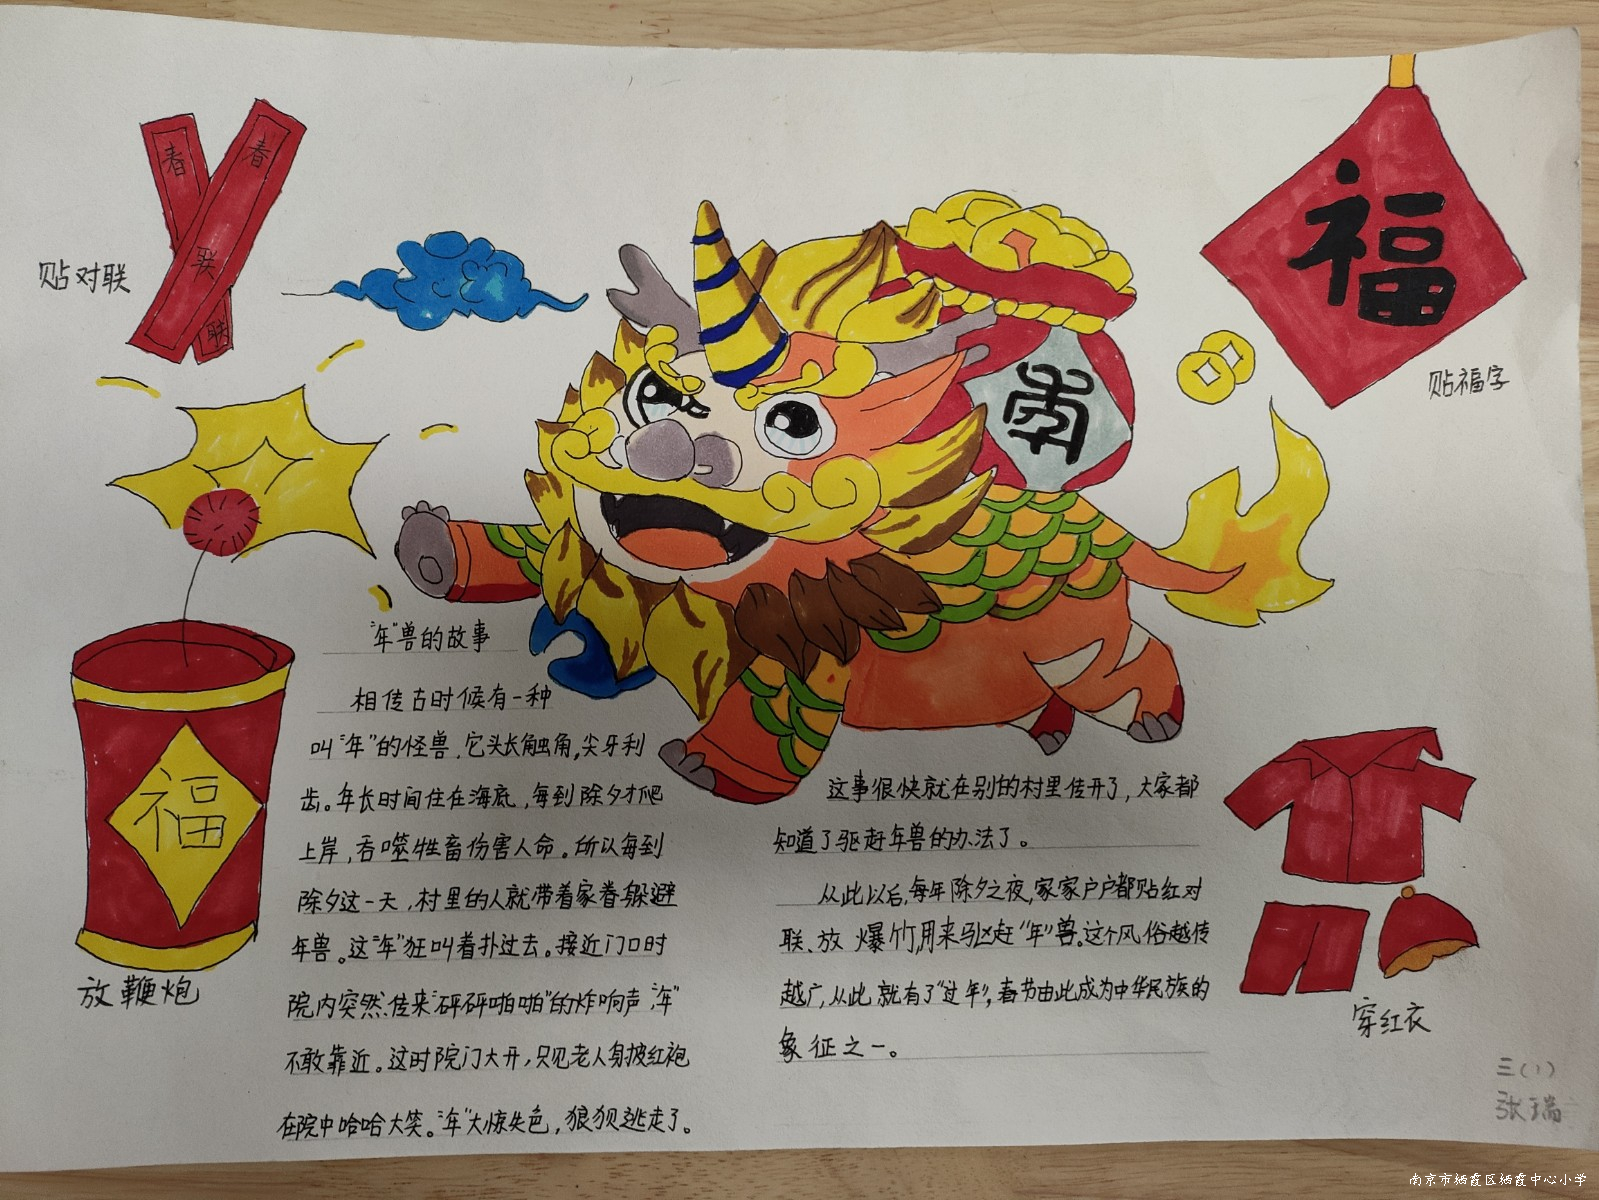 春
春
联
联
贴对联
福
贴福字
福
放鞭炮
"年"兽的故事
相传古时候有一种
叫"年"的怪兽,它头长触角,尖牙利
齿。年长时间住在海底,每到除夕才爬
上岸,吞噬牲畜伤害人命。所以每到
除夕这一天,村里的人就带着家眷躲避
年兽。这"年"狂叫着扑过去。接近门口时
院内突然传来"砰砰啪啪"的炸响声,"年"
不敢靠近。这时院门大开,只见老人身披红袍
在院中哈哈大笑。"年"大惊失色,狼狈逃走了。
这事很快就在别的村里传开了,大家都
知道了驱赶年兽的办法了。
从此以后,每年除夕之夜,家家户户都贴红对
联、放爆竹,用来驱赶"年"兽。这个风俗越传
越广,从此就有了"过年",春节由此成为中华民族的
象征之一。
穿红衣
三(1)
张瑞
南京市栖霞区栖霞中心小学